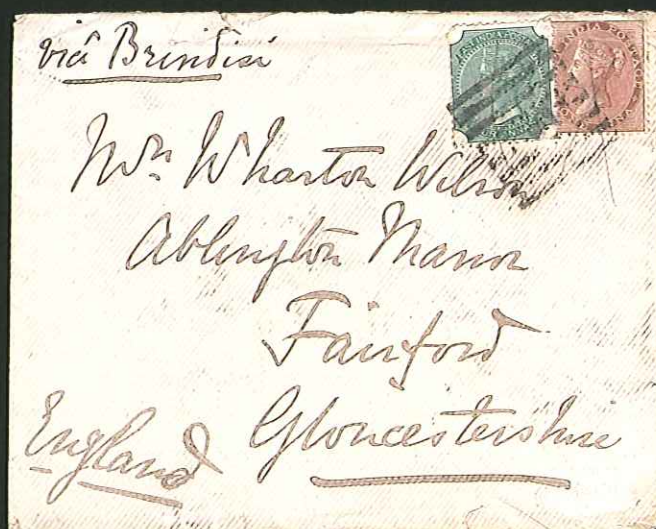 viâ Brindisi
EAST INDIA POSTAGE
EAST INDIA POSTAGE
Mrs Wharton Wilson
Ablington Manor
Fairford
Gloucestershire
England